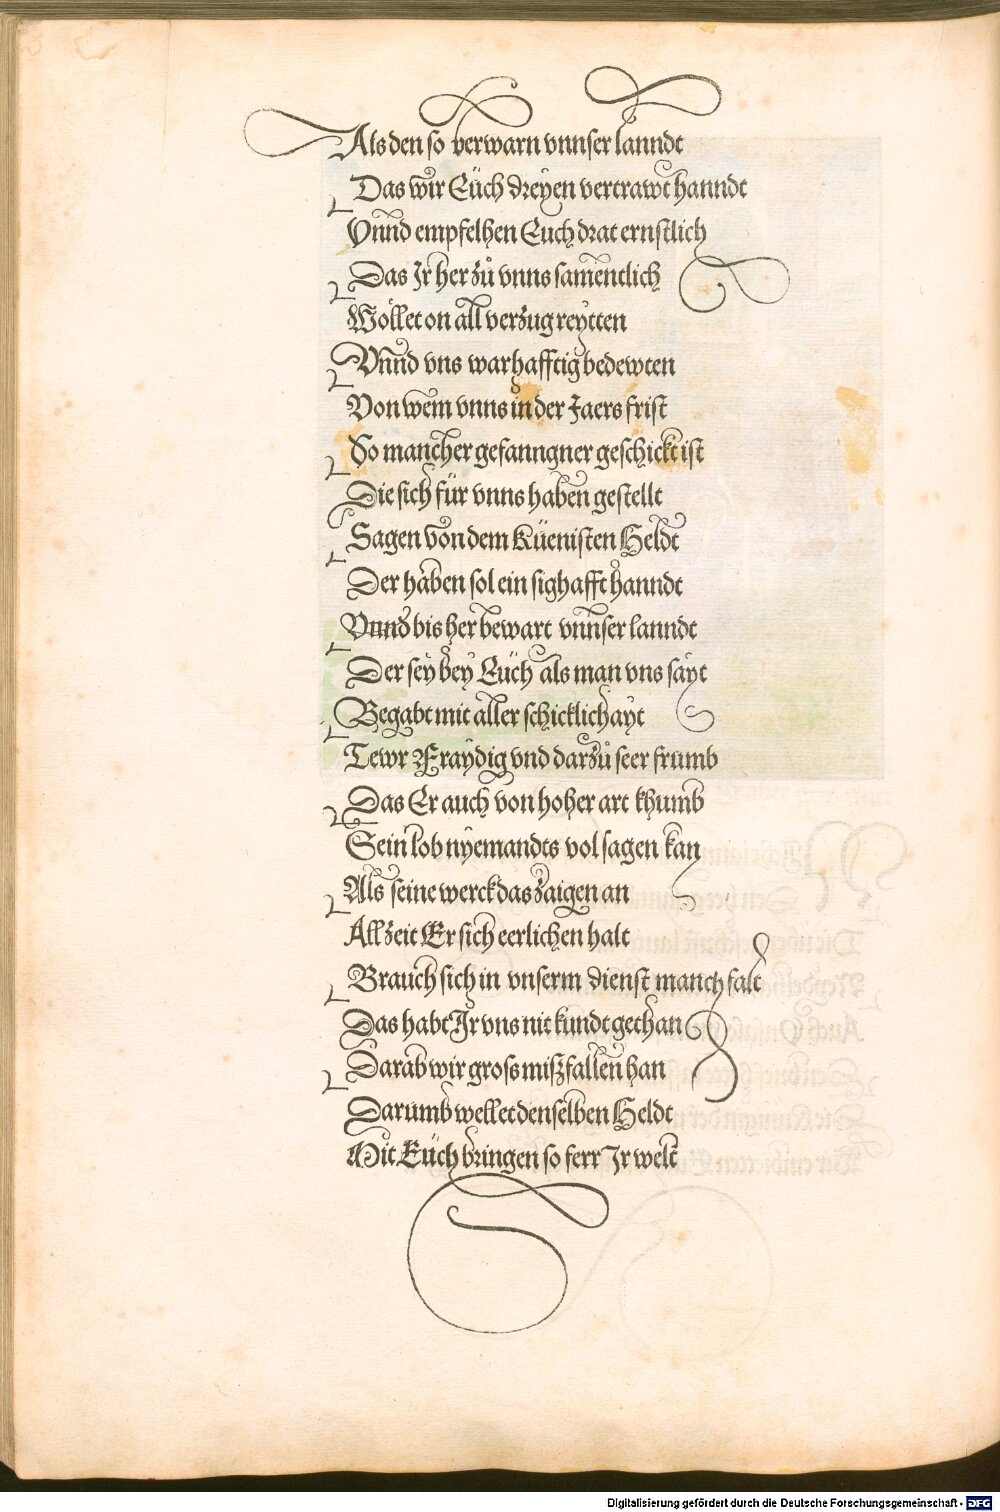 Als den so verwarn vnnser lanndt
Das wir Eüch dreyen vertrawt hanndt
Vnnd empfelhen Euch drat ernstlich
Das Ir her zů vnns samentlich
Wöllet on all verzug reytten
Vnnd vns warhafftig bedewten
Von wem vnns in der Jaers frist
So mancher gefanngner geschickt ist
Die sich für vnns haben gestellt
Sagen von dem Küenisten Heldt
Der haben sol ein sighafft hanndt
Vnnd bis her bewart vnnser lanndt
Der sey bey Eüch als man vns sayt
Begabt mit aller schicklichayt
Tewr Fraydig vnd darzů seer frumb
Das Er auch von hoher art khumb
Sein lob nyemandts vol sagen kan
Als seine werck das zaigen an
Allzeit Er sich eerlichen halt
Brauch sich in vnserm dienst manchfalt
Das habt Ir vns nit kundt gethan
Darab wir gross miszfallen han
Darumb wellet denselben Heldt
Mit Eüch bringen so ferr Ir welt
Digitalisierung gefördert durch die Deutsche Forschungsgemeinschaft - DFG